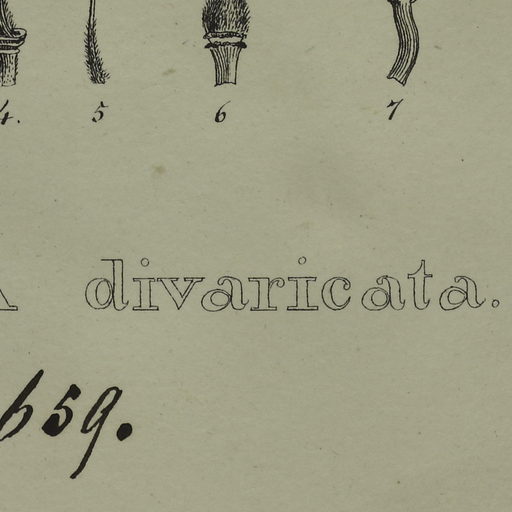 4. 5 6 7
A divaricata.
659.